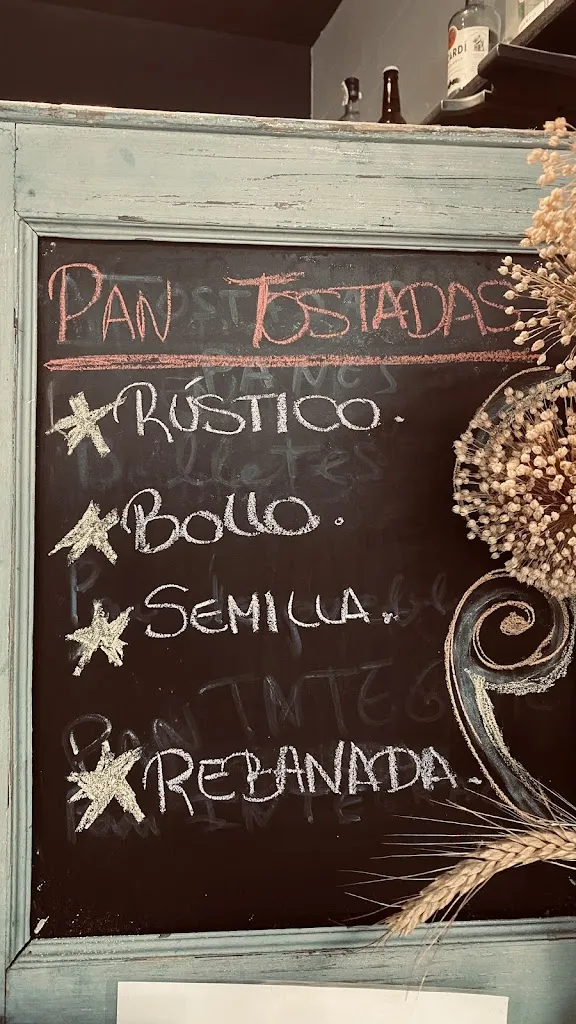 PAN TOSTADAS
RÚSTICO.
BOLLO.
SEMILLA.
REBANADA.